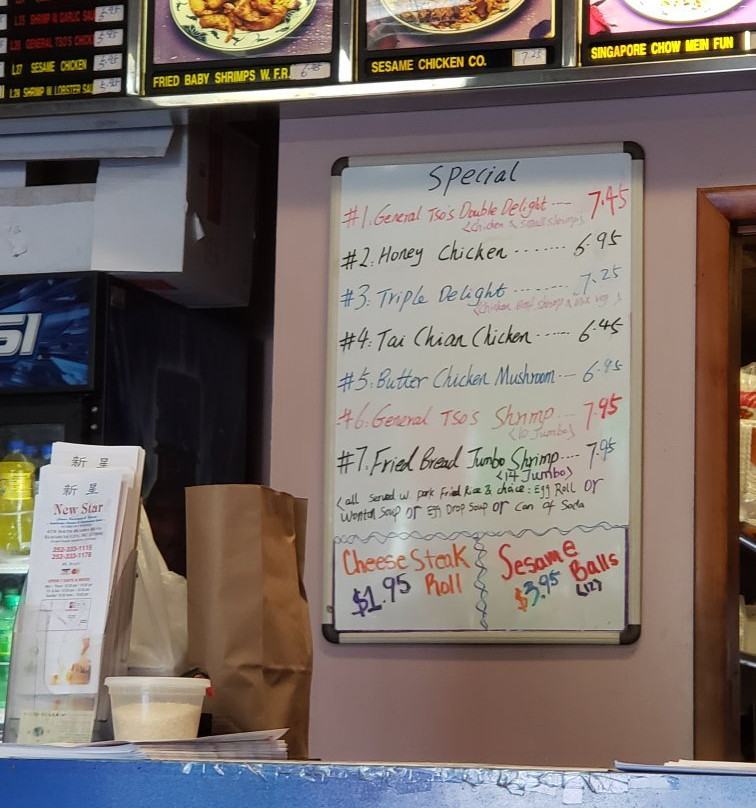 L25 SHRIMP W GARLIC SAU
L26 GENERAL TSO'S CHICK
L27 SESAME CHICKEN
L28 SHRIMP W LOBSTER SAU
FRIED BABY SHRIMPS W. F.R. 6.95
SESAME CHICKEN CO. 7.25
SINGAPORE CHOW MEIN FUN
Special
#1. General Tso's Double Delight ---- 7.45
<Chicken & small shrimp>
#2. Honey Chicken ------- 6.95
#3. Triple Delight -------- 7.25
#4. Tai Chian Chicken ------ 6.45
#5. Butter Chicken Mushroom --- 6.95
#6. General Tso's Shrimp ---- 7.95
<10 Jumbo>
#7. Fried Bread Jumbo Shrimp ---- 7.95
<14 Jumbo>
<all Served w. pork Fried Rice & choice: Egg Roll or
Wonton Soup or Egg Drop Soup or Can of Soda
Cheese Steak Roll
$1.95
Sesame Balls
$3.95 (12)
SI
新星
新星
New Star
252-333-1115
252-333-1176